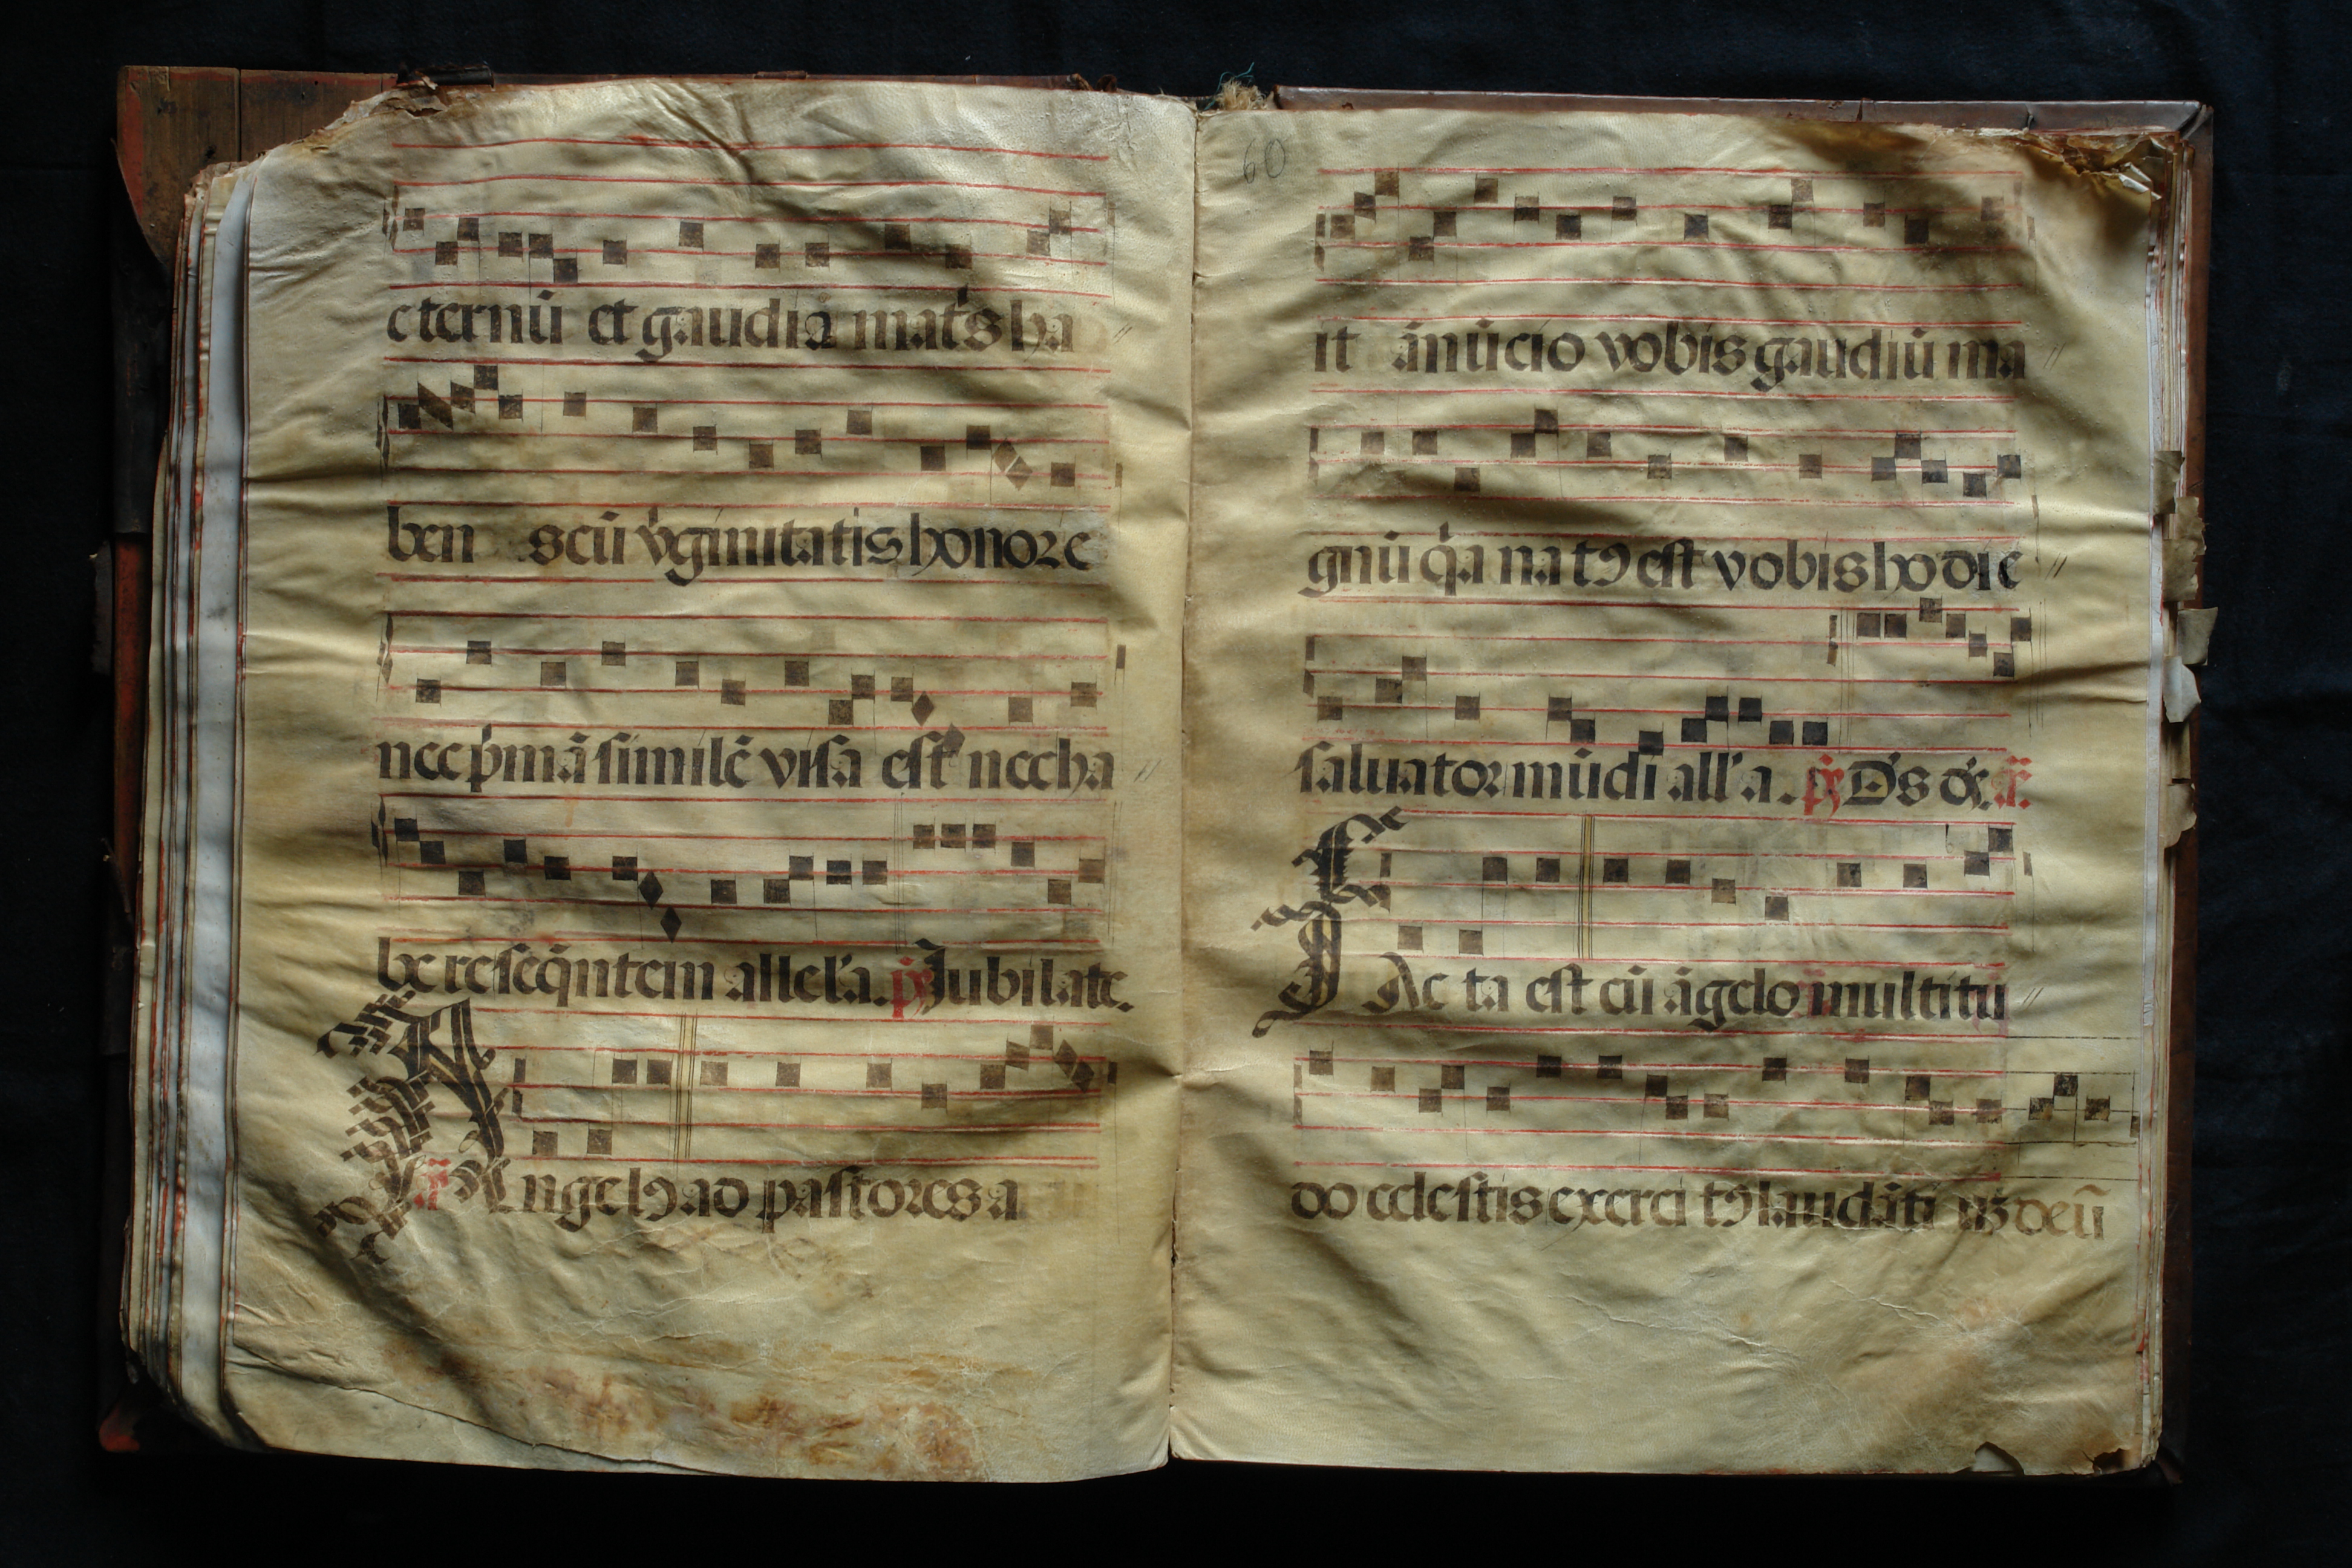 eternū et gaudiā mat's ha
ben scū v'ginitatis honore
nec p'mā similē visa est nec ha
bere seq̄ntem allel'a. ps Jubilate.
an Angelꝰ ad pastores a
60
it ānūcio vobis gaudiū ma
gnū q'a natꝰ est vobis hodie
saluator mūdi all'a. ps D's ds. an
FAc ta est cū āgelo multitu
do celestis exerci tꝰ laudāti uꝫ deū